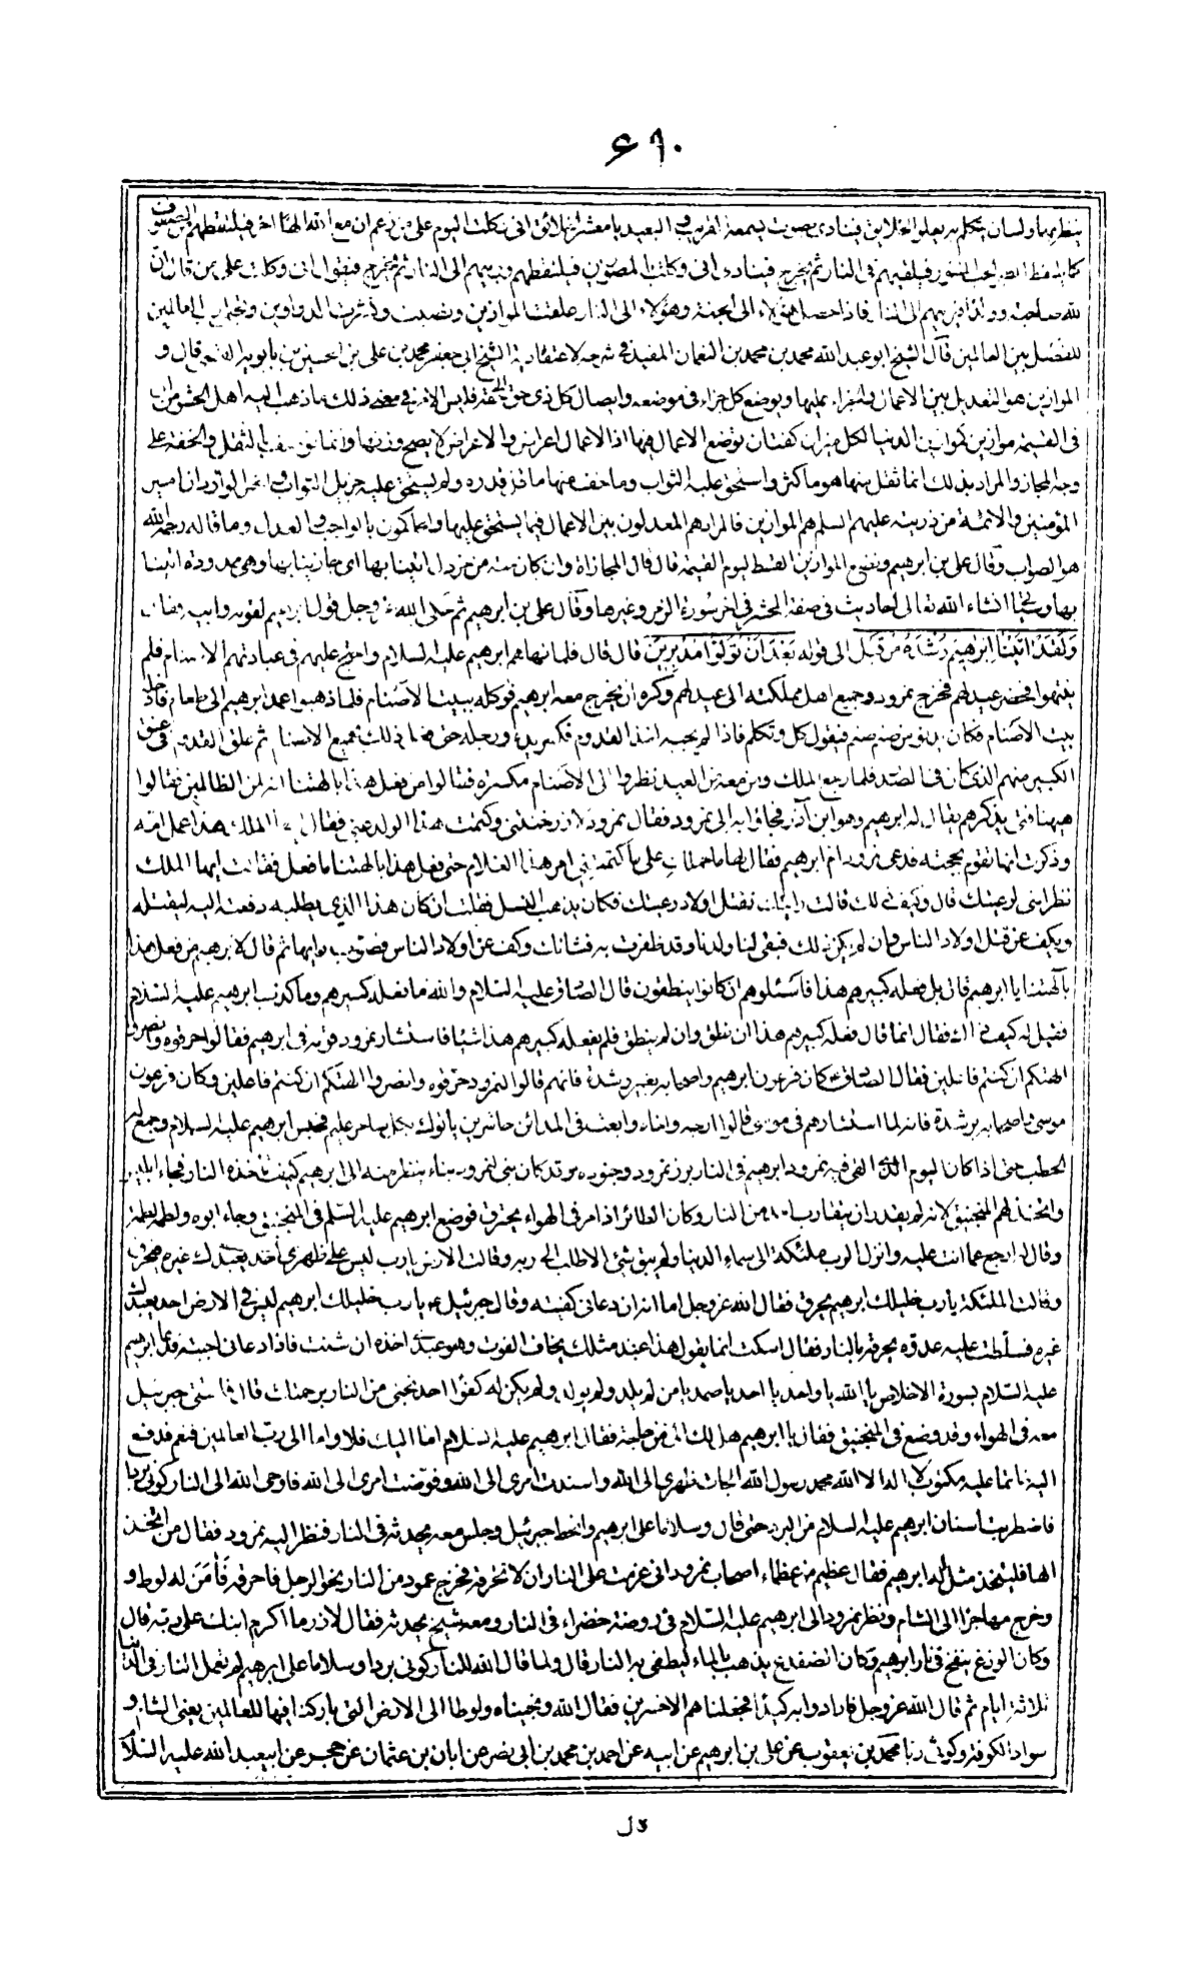 ۶۹۰
ينظر بهما ولسان يتكلم به يعلو الخلائق فينادى بصوت يسمعه القريب والبعيد يا معشر الخلائق انى وكلت اليوم على من زعم ان مع الله الها اخر فيلتقطهم من الصفوف
كما يلتقط الطير الحب فيلقيهم فى النار ثم يخرج فينادى انى وكلت المصورين فيلتقطهم ويرميهم الى النار ثم يخرج فيقول انى وكلت على من قال ان
لله صاحبة وولدا فيرميهم الى النار فاذا حصل هؤلاء الى الجنة وهؤلاء الى النار علقت الموازين ونصبت ونشرت الدواوين وتجلى رب العالمين
للفضل بين العالمين قال الشيخ ابو عبد الله محمد بن محمد بن النعمان المفيد فى شرحه لاعتقادية الشيخ ابى جعفر محمد بن على بن الحسين بن بابويه الله قال و
الموازين هو التعديل بين الاعمال والجزاء عليها ويوضع كل جزاء فى موضعه وايصال كل ذى حق الى حقه فليس الامر فى معنى ذلك ما ذهب اليه اهل الحشو من ان
فى القيمة موازين كموازين الدنيا لكل ميزان كفتان توضع الاعمال فيها اذ الاعمال اعراض والاعراض لا يصح وزنها وانما توصف بالثقل والخفة على
وجه المجاز والمراد بذلك انما ثقل منها هو ما كثر واستحق عليه الثواب وما خف منها ما قل قدره ولم يستحق عليه جزيل الثواب والخبر الوارد ان امير
المؤمنين والائمة من ذريته عليهم السلم هم الموازين فالمراد هم المعدلون بين الاعمال فيما يستحق عليها والحاكمون بالواجب والعدل وما قاله رحمه الله
هو الصواب وقال على بن ابرهيم ونضع الموازين القسط ليوم القيمة قال قال المجازاة وان كان مثقال حبة من خردل اتينا بها اى جازينا بها وهى ممدودة اتينا
بها وسيجئ انشاء الله تعالى احاديث فى صفة الحشر فى اخر سورة الزمر وغيرها وقال على بن ابرهيم ثم حكى الله عز وجل قول ابرهيم لقومه وابيه فقال
وَلَقَدْ اتَيْنَا اِبْرهيمَ رُشْدَهُ مِنْ قَبْلُ الى قوله بَعْدَ اَنْ تُوَلّوا مُدْبِرينَ قال قال فلما نهاهم ابرهيم عليه السلام واحتج عليهم فى عبادتهم الاصنام فلم
ينتهوا فحضر عيد لهم فخرج نمرود وجميع اهل مملكته الى عيد لهم وكره ان يخرج معه ابرهيم فوكله ببيت الاصنام فلما ذهبوا عمد ابرهيم الى طعام فادخله
بيت الاصنام فكان يدنو من صنم صنم فيقول كل وتكلم فاذا لم يجبه اخذ القدوم فكسر يده ورجله حتى فعل ذلك بجميع الاصنام ثم علق القدوم فى عنق
الكبير منهم الذى كان فى الصدر فلما رجع الملك ومن معه من العيد نظروا الى الاصنام مكسرة فقالوا من فعل هذا بالهتنا انه لمن الظالمين فقالوا
هيهنا فتى يذكرهم يقال له ابرهيم وهو ابن آذر فجاؤا به الى نمرود فقال نمرود لاذر خنتنى وكتمت هذا الولد عنى فقال ايها الملك هذا عمل امه
وذكرت انها تقوم بحجته فدعى نمرود ام ابرهيم فقال لها ما حملك على ما كتمتينى امر هذا الغلام حتى فعل هذا بالهتنا ما فعل فقالت ايها الملك
نظرا منى لرعيتك قال وكيف ذلك قالت رايتك تقتل اولاد رعيتك فكان يذهب النسل فقلت ان كان هذا الذى يطلبه دفعته اليه ليقتله
ويكف عن قتل اولاد الناس وان لم يكن ذلك فبقى لنا ولدنا وقد ظفرت به فشانك وكف عن اولاد الناس فصوب رايها ثم قال لابرهيم من فعل هذا
بآلهتنا يا ابرهيم قال بل فعله كبيرهم هذا فاسئلوهم ان كانوا ينطقون قال الصادق عليه السلام والله ما فعله كبيرهم وما كذب ابرهيم عليه السلام
فقيل له كيف ذلك فقال انما قال فعله كبيرهم هذا ان نطق وان لم ينطق فلم يفعله كبيرهم هذا شيئا فاستشار نمرود قومه فى ابرهيم فقالوا حرقوه وانصروا
الهتكم ان كنتم فاعلين فقال الصادق ع كان فرعون ابرهيم واصحابه بغير رشدة فانهم قالوا لنمرود حرقوه وانصروا الهتكم ان كنتم فاعلين وكان فرعون
موسى واصحابه برشدة فانه لما استشارهم فى موسى قالوا ارجه واخاه وابعث فى المدائن حاشرين ياتوك بكل ساحر عليم فحبس ابرهيم عليه السلام وجمع له
الحطب حتى اذا كان اليوم الذى القى فيه نمرود ابرهيم فى النار برز نمرود وجنوده وقد كان بنى لنمرود بناء ينظر منه الى ابرهيم كيف تاخذه النار فجاء ابليس
واتخذ لهم المنجنيق لانه لم يقدر ان يتقارب من النار وكان الطائر اذا مر فى الهواء يحترق فوضع ابرهيم عليه السلم فى المنجنيق وجاء ابوه ولطمه لطمة
وقال له ارجع عما انت عليه وانزل الرب ملئكة الى سماء الدنيا ولم يبق شئ الا طلب الى ربه وقالت الارض يا رب ليس على ظهرى احد يعبدك غيره فيحرق
وقالت الملئكة يا رب خليلك ابرهيم يحرق فقال الله عز وجل اما انه ان دعانى كفيته وقال جبرئيل ع يا رب خليلك ابرهيم ليس فى الارض احد يعبدك
غيره فسلطت عليه عدوه يحرقه بالنار فقال اسكت انما يقول هذا عبد مثلك يخاف الفوت وهو عبدى اخذه ان شئت فاذا دعانى اجبته فدعا ابرهيم
عليه السلام بسورة الاخلاص يا الله يا واحد يا احد يا صمد يا من لم يلد ولم يولد ولم يكن له كفوا احد نجنى من النار برحمتك قال فالتقى جبرئيل
معه فى الهواء وقد وضع فى المنجنيق فقال يا ابرهيم هل لك الى من حاجة فقال ابرهيم عليه السلام اما اليك فلا واما الى رب العالمين فنعم فدفع
اليه خاتما عليه مكتوب لا اله الا الله محمد رسول الله الجات ظهرى الى الله واسندت امرى الى الله وفوضت امرى الى الله فاوحى الله الى النار كونى بردا
فاضطربت اسنان ابرهيم عليه السلام من البرد حتى قال وسلاما على ابرهيم وانحط جبرئيل وجلس معه يحدثه فى النار فنظر اليه نمرود فقال من اتخذ
الها فليتخذ مثل اله ابرهيم فقال عظيم من عظماء اصحاب نمرود انى عزمت على النار ان لا تحرقه فخرج عمود من النار نحو الرجل فاحرقه فَاٰمَنَ له لوط و
وخرج مهاجرا الى الشام ونظر نمرود الى ابرهيم عليه السلام فى روضة خضراء فى النار ومعه شيخ يحدثه فقال لاذر ما اكرم ابنك على ربه قال
وكان الوزغ ينفخ فى نار ابرهيم وكان الضفدع يذهب بالماء ليطفى به النار قال ولما قال الله للنار كونى بردا وسلاما على ابرهيم لم تعمل النار فى الدنيا
ثلاثة ايام ثم قال الله عز وجل فارادوا به كيدا فجعلناهم الاخسرين فقال الله ونجيناه ولوطا الى الارض التى باركنا فيها للعالمين يعنى الشام و
سواد الكوفة وكوثى ربا محمد بن يعقوب عن على بن ابرهيم عن ابيه عن احمد بن محمد بن ابى نصر عن ابان بن عثمان عن حجر عن ابيعبد الله عليه السلام
قال